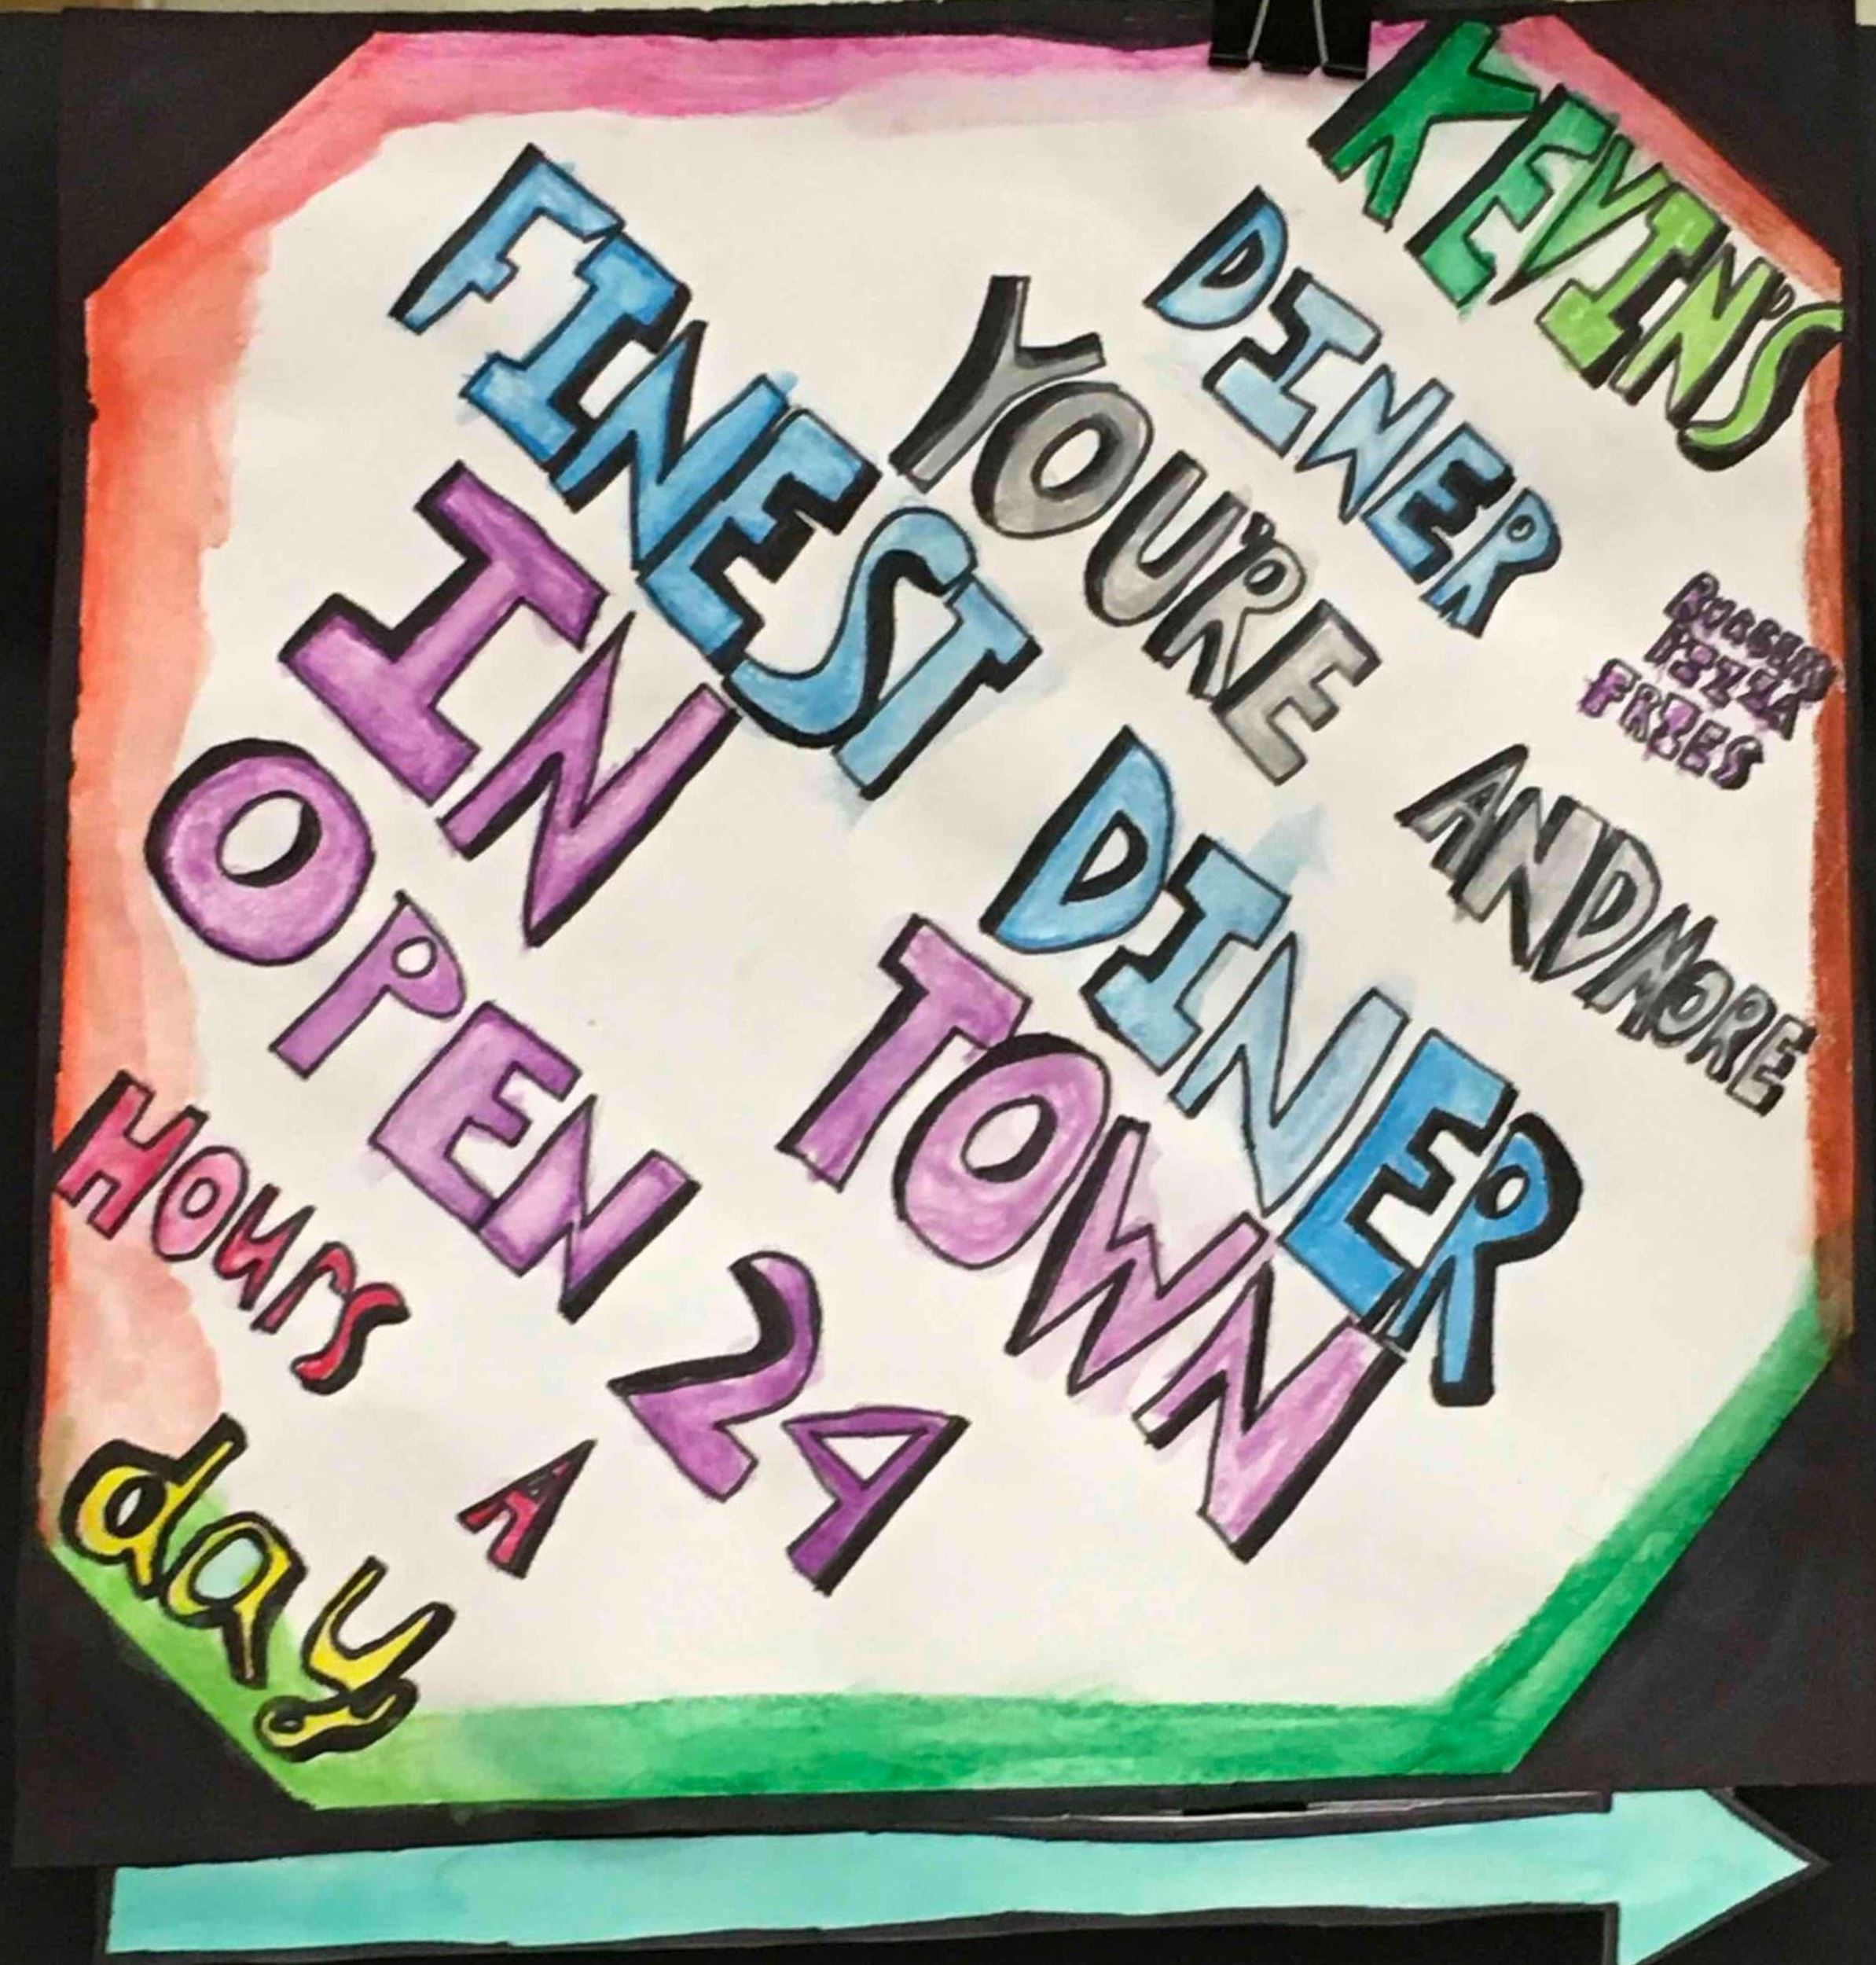 KEVIN'S
DINER
BURGERS
PIZZA
FRIES
YOU'RE
AND MORE
FINEST DINER
IN TOWN
OPEN 24
HOurS A
day